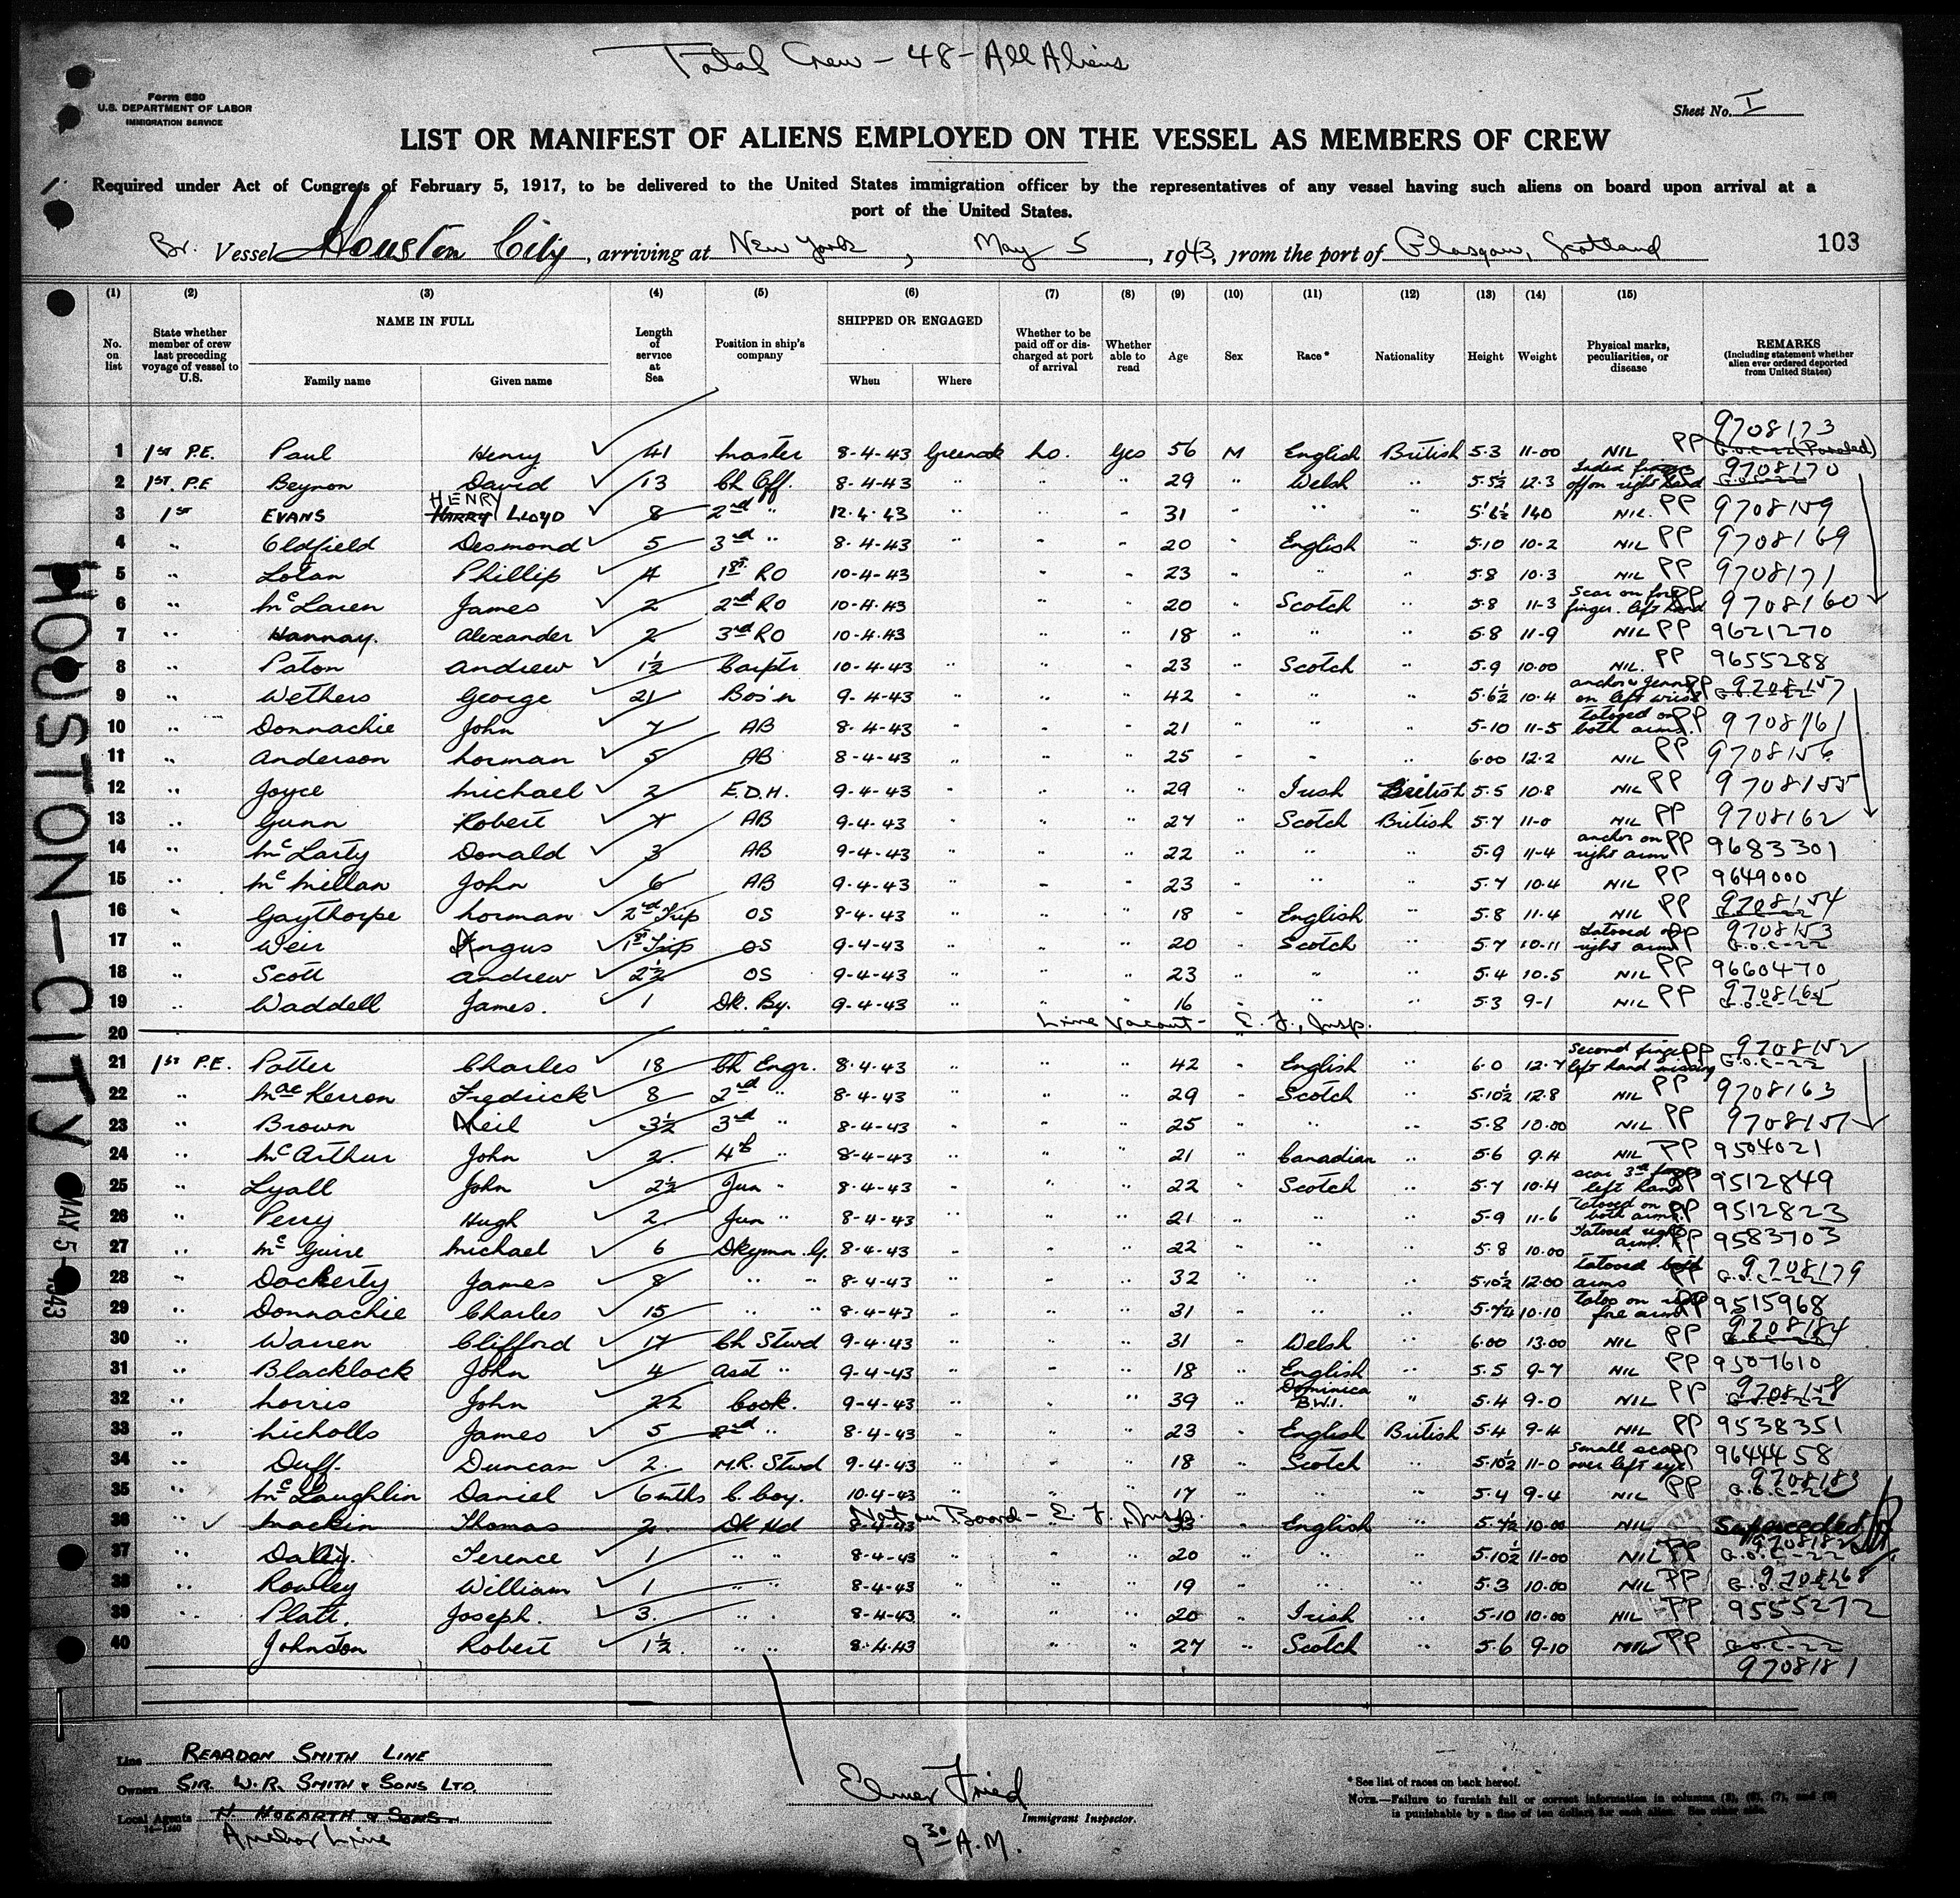 Total Crew - 48 - All Aliens
Form 680
U.S. DEPARTMENT OF LABOR
IMMIGRATION SERVICE
Sheet No. I
LIST OR MANIFEST OF ALIENS EMPLOYED ON THE VESSEL AS MEMBERS OF CREW
Required under Act of Congress of February 5, 1917, to be delivered to the United States immigration officer by the representatives of any vessel having such aliens on board upon arrival at a
port of the United States.
Br. Vessel Houston City, arriving at New York, May 5, 1943, from the port of Glasgow, Scotland 103
(1) (2) (3) (4) (5) (6) (7) (8) (9) (10) (11) (12) (13) (14) (15)
No. on list State whether member of crew last preceding voyage of vessel to U.S. NAME IN FULL Length of service at Sea Position in ship's company SHIPPED OR ENGAGED Whether to be paid off or discharged at port of arrival Whether able to read Age Sex Race* Nationality Height Weight Physical marks, peculiarities, or disease REMARKS (Including statement whether alien ever ordered deported from United States)
Family name Given name When Where
1 1st P.E. Paul Henry 41 Master 8-4-43 Greenock No. Yes 56 M English British 5.3 11-00 NIL PP 9708173
2 1st. P.E Beynon David 13 Ch Off. 8-4-43 " " " 29 " Welsh " 5.5½ 12.3 Index finger off on right hand 9708170
3 1st EVANS HENRY HARRY LLOYD 8 2nd " 12.4.43 " " 31 " " " 5'6½ 140 NIL. PP 9708159
4 " Oldfield Desmond 5 3rd " 8-4-43 " " 20 " English " 5.10 10-2 NIL PP 9708169
5 " Lotan Phillip 4 1st RO 10-4-43 " " 23 " " " 5.8 10.3 NIL PP 9708171
6 " McLaren James 2 2nd RO 10-4.43 " " 20 " Scotch " 5.8 11-3 Scar on fore finger. left hand PP 9708160
7 " Hannay. Alexander 2 3rd RO 10-4.43 " " 18 " " " 5.8 11-9 NIL PP 9621270
8 " Paton Andrew 1½ Carptr 10-4-43 " " " 23 " Scotch " 5.9 10.00 NIL. PP 9655288
9 " Wethers George 21 Bos'n 9-4-43 " " " 42 " " " 5.6½ 10.4 on left wrist PP 9708157
10 " Donnachie John 7 AB 8-4-43 " " " 21 " " 5-10 11-5 tatooed on both arms. PP 9708161
11 " Anderson Norman 5 AB 8-4-43 " " " 25 " " 6.00 12.2 NIL PP 9708156
12 " Joyce Michael 2 E.D.H. 9-4-43 " " " 29 " Irish British 5.5 10.8 NIL PP 9708155
13 " Gunn Robert 7 AB 9-4-43 " " " 27 " Scotch British 5.7 11-0 NIL PP 9708162
14 " McLarty Donald 3 AB 9-4-43 " " " 22 " " " 5.9 11-4 anchor on right arm PP 9683301
15 " McMillan John 6 AB 9-4-43 " " " 23 " " " 5.7 10.4 NIL PP 9649000
16 " Gaythorpe Norman 2nd Trip OS 8-4-43 " " " 18 " English " 5.8 11.4 NIL PP 9708154
17 " Weir Angus 1st Trip OS 9-4-43 " " " 20 " Scotch " 5.7 10-11 Tatooed on right arm PP 9708153 G.O.C-22
18 " Scott Andrew 2½ OS 9-4-43 " " " 23 " " " 5.4 10.5 NIL PP 9660470
19 " Waddell James. 1 Dk. By. 9-4-43 " " " 16 " " " 5.3 9-1 NIL PP 9708165
20 Line Vacant - E. F., Insp.
21 1st P.E. Potter Charles 18 Ch Engr. 8-4-43 " " " 42 " English " 6.0 12.7 Second finger left hand missing PP 9708152 G.O.C-22
22 " MacKerron Fredrick 8 2nd " 8-4-43 " " " 29 " Scotch " 5.10½ 12.8 NIL PP 9708163
23 " Brown Neil 3½ 3rd " 8-4-43 " " " 25 " " " 5.8 10.00 NIL PP 9708151
24 " McArthur John 2. 4th " 8-4-43 " " " 21 " Canadian " 5.6 9.4 NIL PP 9504021
25 " Lyall John 2½ Jun " 8-4-43 " " " 22 " Scotch " 5.7 10.4 scar 3rd finger left hand PP 9512849
26 " Perry Hugh 2. Jun " 8-4-43 " " " 21 " " " 5.9 11-6 tatooed on both arms. PP 9512823
27 " McGuire Michael 6 Dkymn G. 8-4-43 " " " 22 " " " 5.8 10.00 Tatooed right arm. PP 9583703
28 " Dockerty James 8 " " 8-4-43 " " " 32 " " " 5.10½ 12.00 tatooed both arms PP 9708179
29 " Donnachie Charles 15 " " 8-4-43 " " " 31 " " " 5.7¼ 10.10 Tatoo on right fore arm PP 9515968
30 " Warren Clifford 17 Ch Stwd 9-4-43 " " " 31 " Welsh " 6.00 13.00 NIL PP 9708184
31 " Blacklock John 4 Asst " 9-4-43 " " " 18 " English " 5.5 9-7 NIL PP 9507610
32 " Norris John 22 Cook. 9-4-43 " " 39 " Dominica B.W.I. " 5.4 9-0 NIL PP 9708158
33 " Nicholls James 5 2nd " 8-4-43 " " " 23 " English British 5.4 9-4 NIL PP 9538351
34 " Duff. Duncan 2. M.R. Stwd 9-4-43 " " " 18 " Scotch " 5.10½ 11-0 Small scar over left eye PP 9644458
35 " McLaughlin Daniel 6 mths C. boy. 10.4-43 " " " 17 " " " 5.4 9-4 NIL PP 9708183 G.O.C-22
36 " Mackin Thomas 2. Dk Hd 8-4-43 Not on Board - E. F., Insp. 33 " English " 5.7½ 10-00 NIL Superceded
37 " Daley. Terence 1 " " 8-4-43 " " " 20 " " " 5.10½ 11-00 NIL PP 9708182 G.O.C-22
38 " Rowley William 1 " " 8-4-43 " " " 19 " " " 5.3 10.00 NIL PP 9708168
39 " Platt, Joseph. 3. " " 8-4-43 " " " 20 " Irish " 5-10 10.00 NIL PP 9555272
40 Johnston Robert 1½. " " 8.4.43 " " " 27 " Scotch " 5.6 9-10 NIL PP G.O.C-22
9708181
HOUSTON-CITY MAY 5 - 1943
Line REARDON SMITH LINE
Owners SIR W.R. SMITH & SONS LTD.
Local Agents H. HOGARTH & SONS.
Anchor Line
14-1240
Elmer Fried
Immigrant Inspector.
9 30 A.M.
* See list of races on back hereof.
NOTE.—Failure to furnish full or correct information in columns (3), (6), (7), and (8)
is punishable by a fine of ten dollars for each alien. See other side.